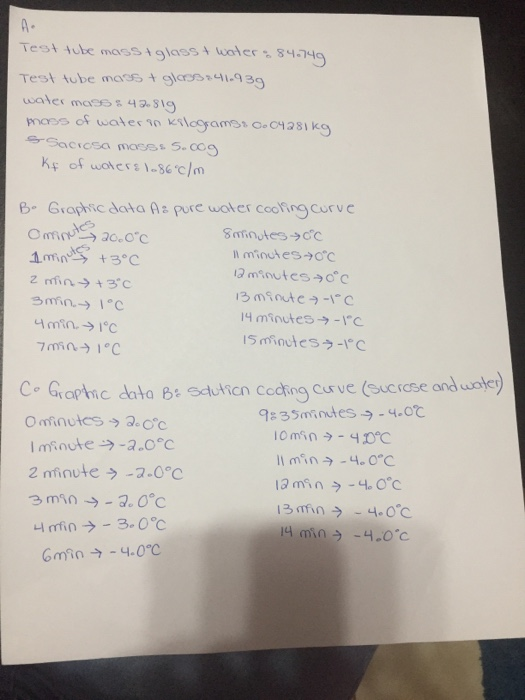 A.
Test tube mass + glass + water: 84.74g
Test tube mass + glass: 41.93g
water mass: 42.81g
mass of water in kilograms: 0.04281 kg
Sacrosa mass: 5.00g
Kf of water: 1.86°C/m
B. Graphic data A: pure water cooling curve
0 minutes → 20.0°C
1 minutes → +3°C
2 min → +3°C
3 min → 1°C
4 min → 1°C
7 min → 1°C
8 minutes → 0°C
11 minutes → 0°C
12 minutes → 0°C
13 minute → -1°C
14 minutes → -1°C
15 minutes → -1°C
C. Graphic data B: solution cooling curve (sucrose and water)
0 minutes → 2.0°C
1 minute → -2.0°C
2 minute → -2.0°C
3 min → -2.0°C
4 min → -3.0°C
6 min → -4.0°C
9:35 minutes → -4.0°C
10 min → -4.0°C
11 min → -4.0°C
12 min → -4.0°C
13 min → -4.0°C
14 min → -4.0°C